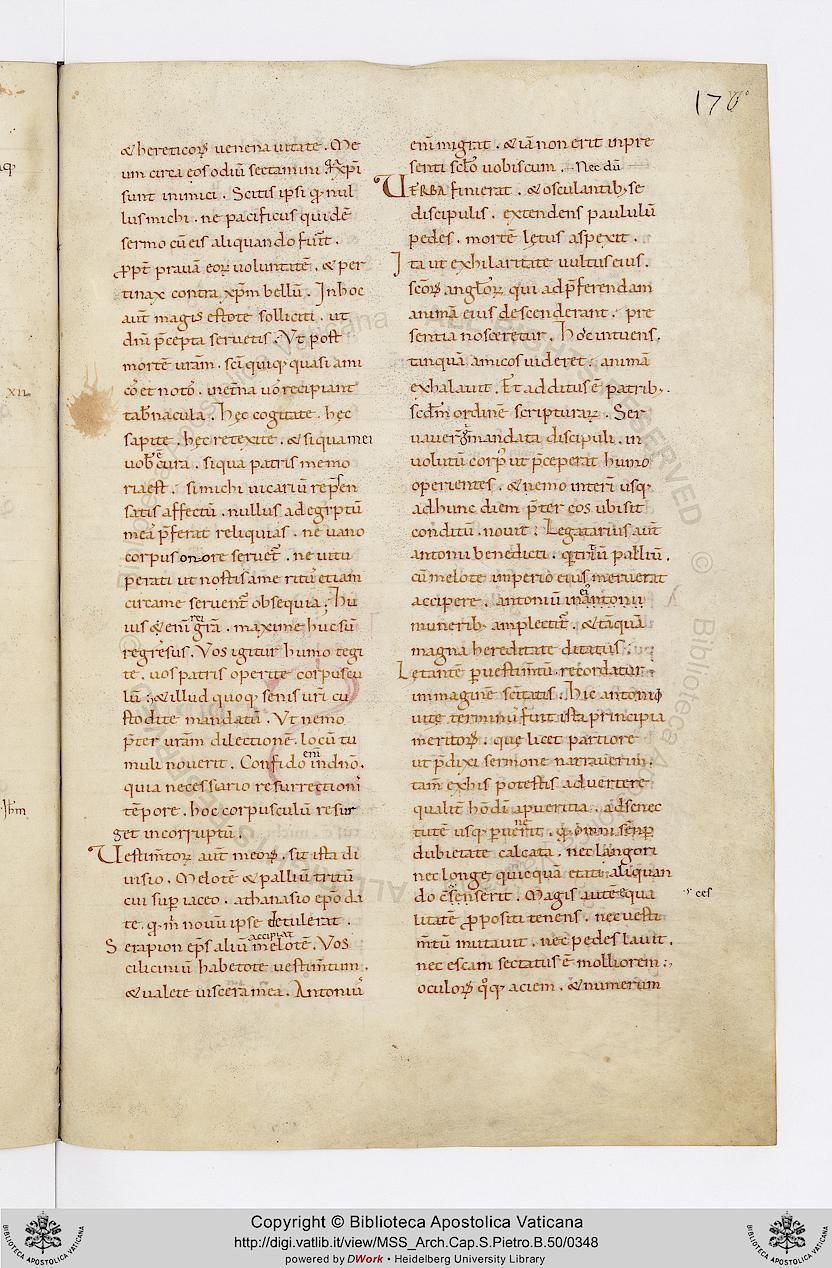 170
& hereticorȝ uenena uitate. Me
um circa eos odiū sectamini qͥa xp̄i
sunt inimici. Scitis ipsi qͩ nul
lus michi. ne pacificus quidē
sermo cū eis aliquando fuit.
ꝓpt̄ prauā eorꝝ voluntatē. & per
tinax contra xp̄m bellū. In hoc
aut̄ magis estote solliciti. ut
dn̄i p̄cepta seruetis. Ut post
mortē urām. sc̄i quiq; quasi ami
cos et notos. in et̄na uos recipiant
tab̄nacula. Hęc cogitate. hęc
sapite. hęc retexite. & si qua mei
uob̄ ē cura. si qua patris memo
ria est. si michi uicariū rep̄sen
tatis affectū. nullus ad egyptū
meas p̄ferat reliquias. ne uano
corpus onore seruet̄. ne uitu
perati ut nostis a me ritus etiam
circa me seruent̄ obsequia. Hu
ius & enī rei gr̄a. maxime huc sū
regressus. Vos igitur humo tegi
te. uos patris operite corpuscu
lū. & illud quoq; senis uri cu
stodite mandatū. Ut nemo
p̄ter urām dilectionē. locū tu
muli nouerit. Confido enī in dn̄o.
quia necessario resurrectionis
tēpore. hoc corpusculū resur
get incorruptū.
Uestim̄torꝝ aut̄ meorȝ. sit ista di
uisio. Melotē & palliū tritū
cui sup̄ iaceo. athanasio epō da
te. qͩ m̄ nouū ipse detulerat.
Serapion ep̄s aliū accipiat melotē. Vos
ciliciniū habetote uestim̄tum.
& ualete uiscera mea. Antonius
enī migrat. & iā non erit in pre
senti sc̄lo uobiscum. Nec dū
UERBA finierat. & osculantib; se
discipulis. extendens paululū
pedes. mortē lętus aspexit.
Ita ut ex hilaritate uultus eius.
sc̄orȝ angl̄orꝝ qui ad p̄ferendam
animā eius descenderant. pre
sentia nosceretur. Hoc intuens.
tāquā amicos uideret. animā
exhalauit. Et additus ē patrib;.
sc̄dm ordinē scripturarꝝ. Ser
uauerūt mandata discipuli. in
uolutū corp̄ ut p̄ceperat humo
operientes. & nemo interī usq;
ad hunc diem p̄ter eos ubi sit
conditū. nouit. Legatarius aut̄
antonii benedicti. qͥ tritū palliū.
cū melote imperio eius meruerat
accipere. antoniū in antonii
munerib; amplectit̄. & tāquā
magna hereditate ditatus.
Letantē ꝑ uestim̄tū. recordatur
immaginē sc̄itatis. Hic antonio
uite terminus fuit ista principia
meritorȝ. que licet partiore
ut p̄dixi sermone narrauerim.
tam̄ ex his potestis aduertere
qualit̄ hō dī a pueritia. ad senec
tutē usq; ꝑuenerit. qͩ omni semp̄
dubietate calcata. nec langori
nec longe quicquā etati aliquan
do cesserit. Magis autē equa
litatē ꝓpositi tenens. nec uesti
m̄tū mutauit. nec pedes lauit.
nec escam sectatus ē molliorem.
oculorȝ qͦq; aciem. & numerum
ces
XII
Copyright © Biblioteca Apostolica Vaticana
http://digi.vatlib.it/view/MSS_Arch.Cap.S.Pietro.B.50/0348
powered by DWork • Heidelberg University Library
BIBLIOTECA APOSTOLICA VATICANA
BIBLIOTECA APOSTOLICA VATICANA